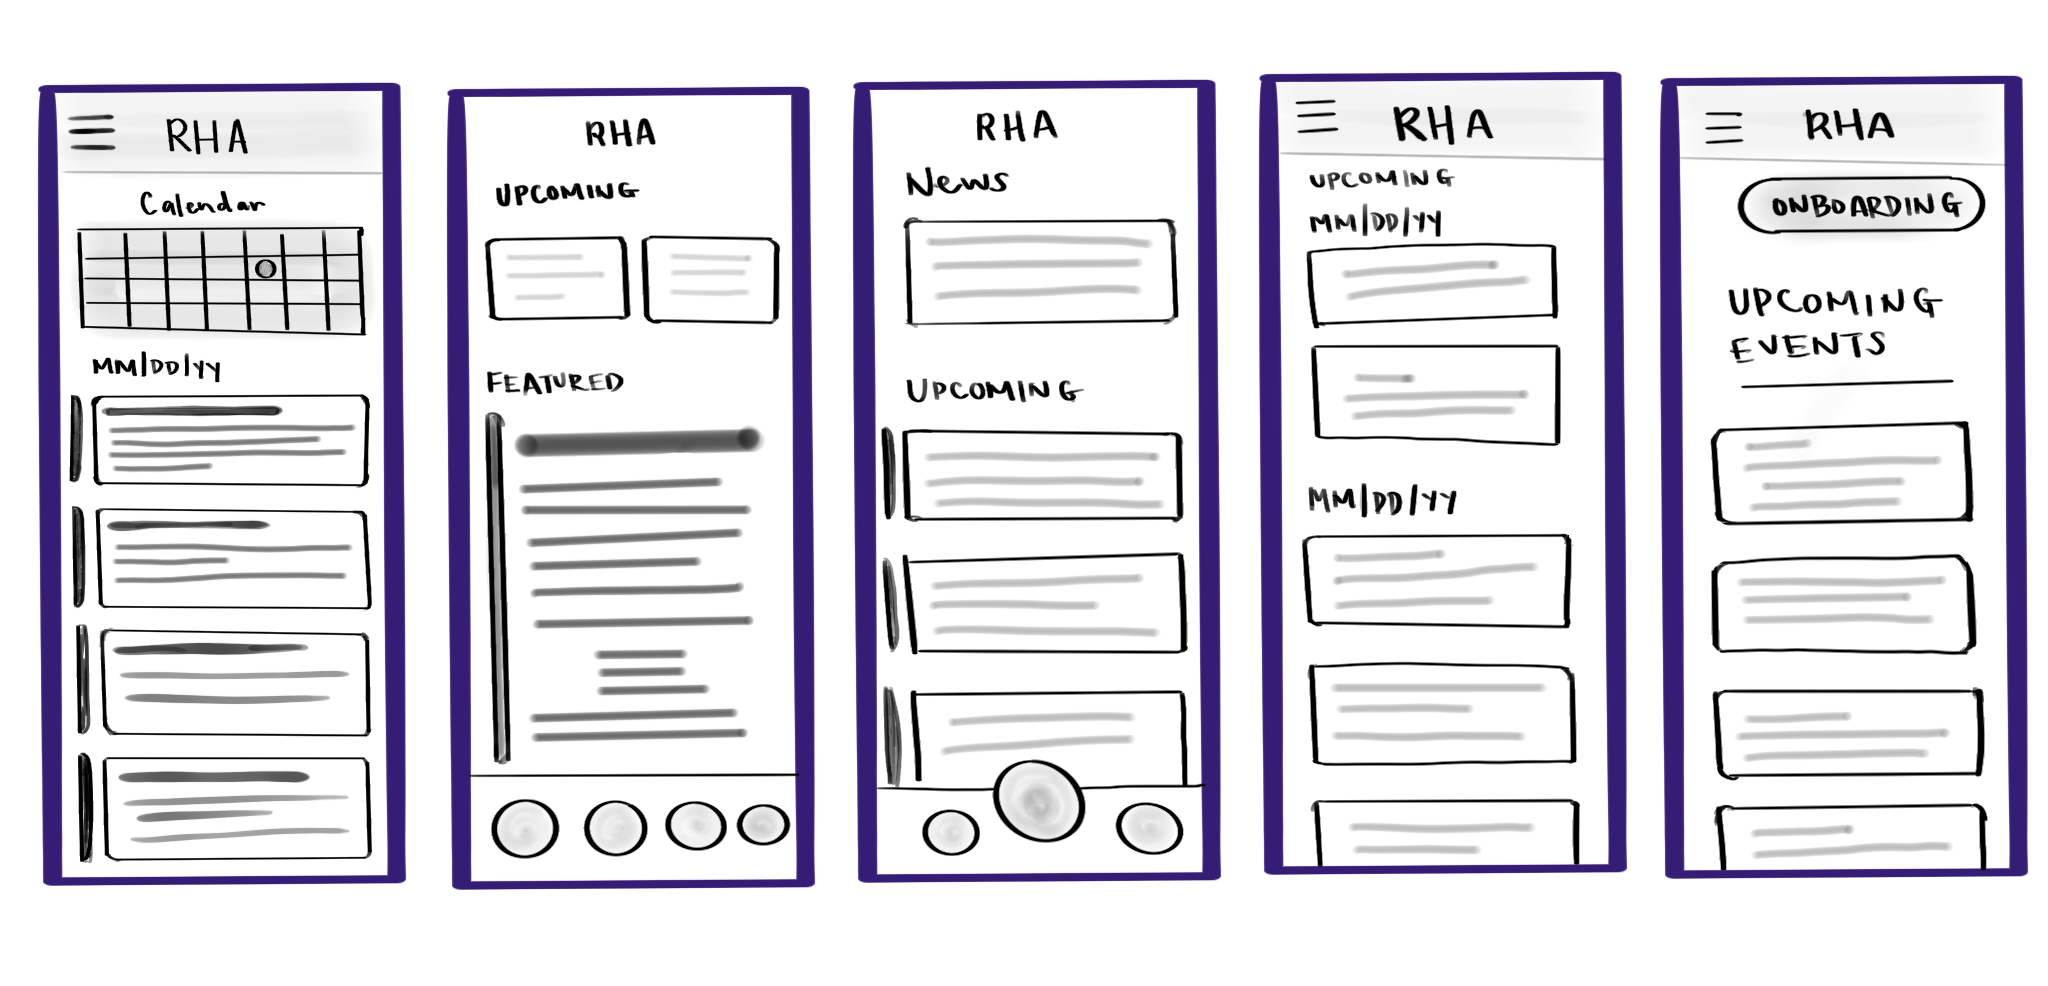 RHA
Calendar
MM/DD/YY
RHA
UPCOMING
FEATURED
RHA
News
UPCOMING
RHA
UPCOMING
MM/DD/YY
MM/DD/YY
RHA
ONBOARDING
UPCOMING
EVENTS